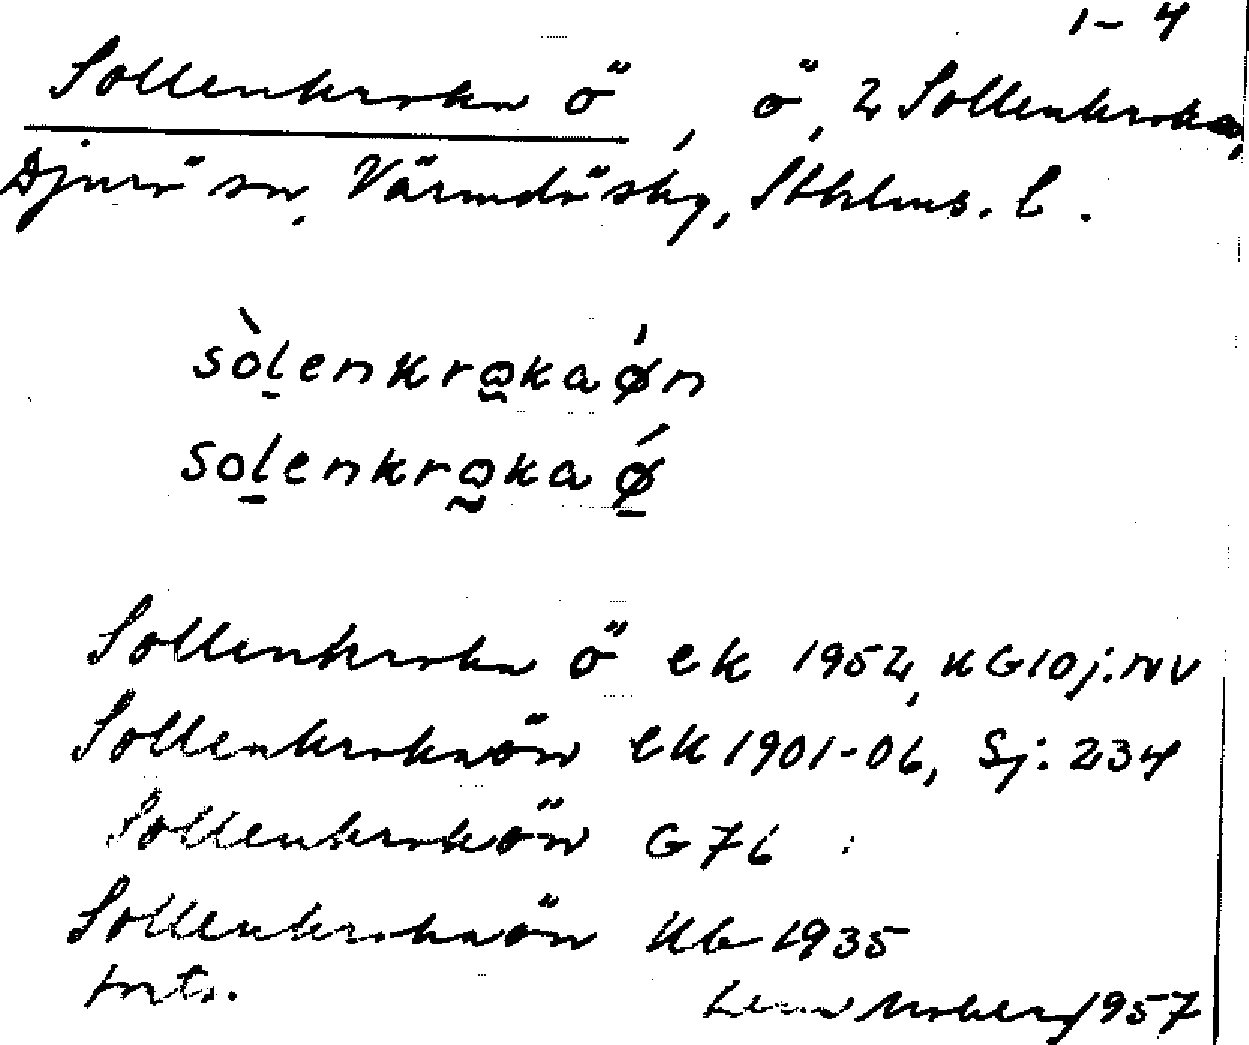 1-4
Sollenkroka ö, ö, 2 Sollenkroka,
Djurö sn, Värmdö skg, Sthlms. l.
sòlenkrωkaǿn
solenkrωkaǿ
Sollenkroka ö ek 1952, KG 10 j. NV
Sollenkrokaön ek 1901-06, Sj. 234
Sollenkrokön G 76
Sollenkrokaön Kb 1935
forts.
Lena Moberg 1957